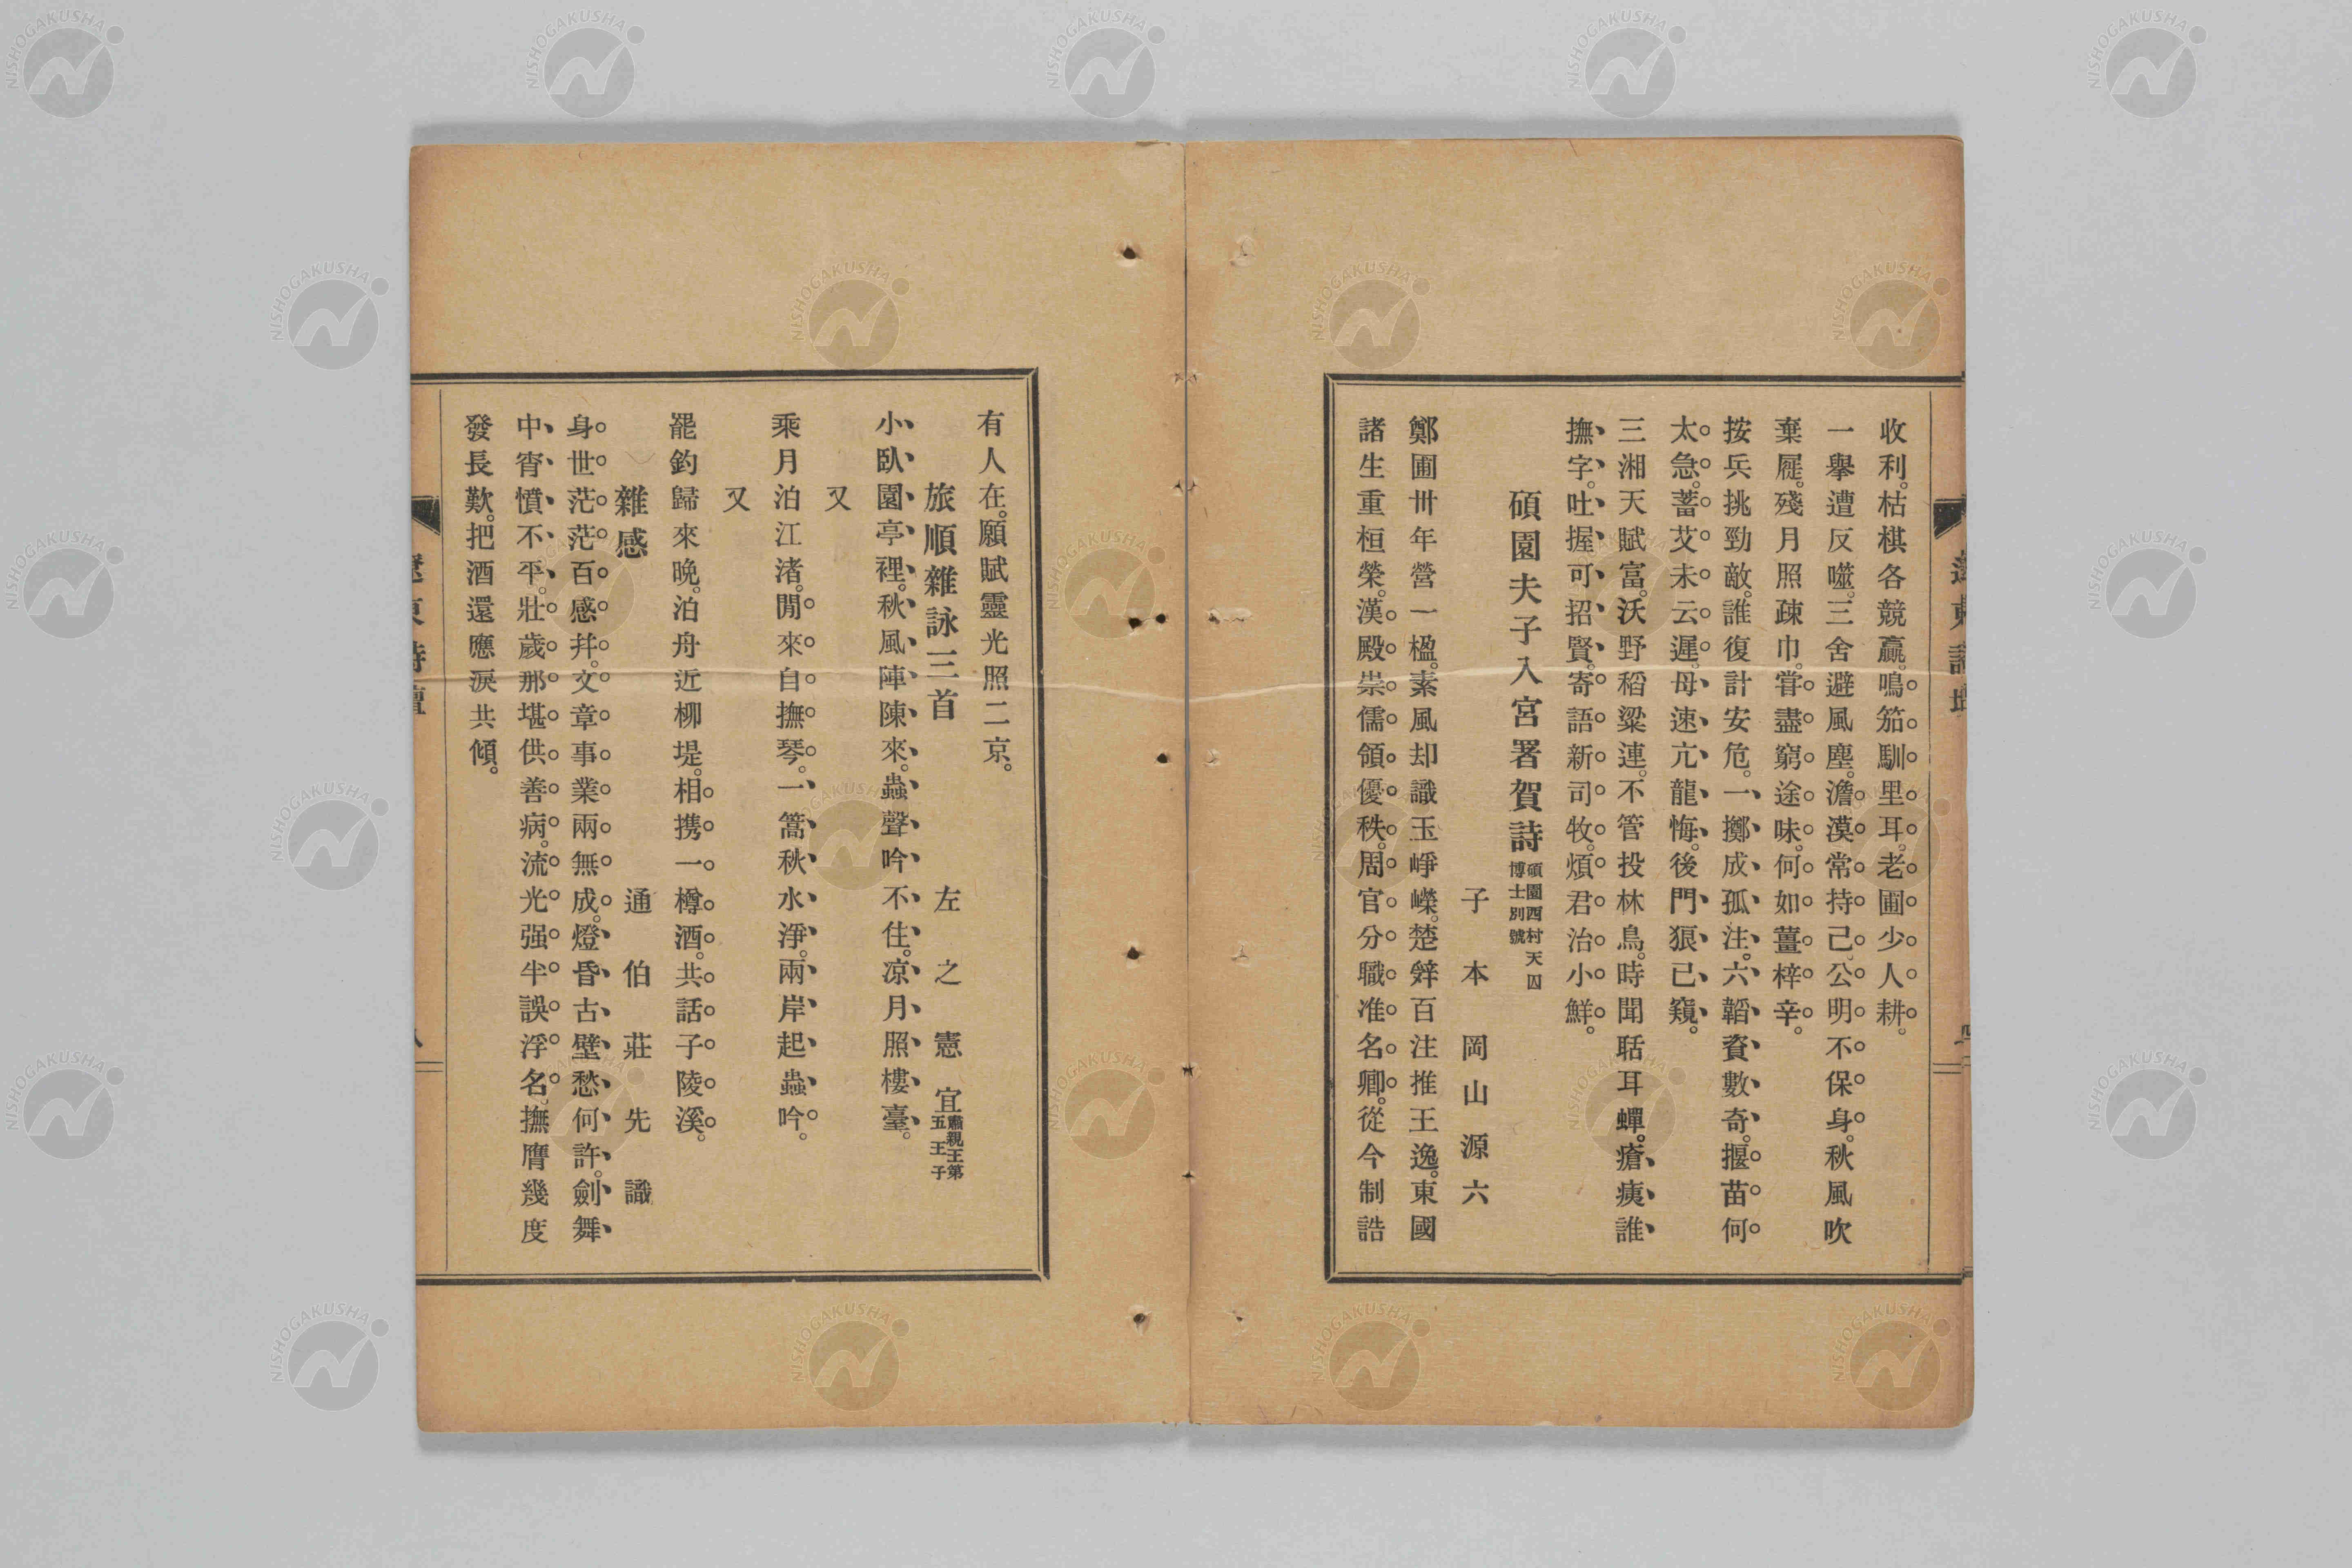 收利。枯棋各競贏。鳴笳馴里耳。老圃少人耕。
一擧遭反噬。三舍避風塵。澹漠常持己。公明不保身。秋風吹
棄屣。殘月照疎巾。甞盡窮途味。何如薑梓辛。
按兵挑勁敵。誰復計安危。一擲成孤注。六韜資數奇。揠苗何
太急。蓄艾未云遲。母速亢龍悔。後門狼已窺。
三湘天賦富。沃野稻粱連。不管投林鳥。時聞聒耳蟬。瘡痍誰
撫字。吐握可招賢。寄語新司牧。煩君治小鮮。
碩園夫子入宮署賀詩 碩園西村天囚博士別號
子本 岡山源六
鄭圃卅年營一楹。素風却識玉崢嶸。楚辤百注推王逸。東國
諸生重桓榮。漢殿祟儒領優秩。周官分職准名卿。從今制誥
有人在。願賦靈光照二京。
旅順雜詠三首
左之 憲宜 肅親王第五王子
小臥園亭裡。秋風陣陳來。蟲聲吟不住。凉月照樓臺。
又
乘月泊江渚。閒來自撫琴。一篙秋水淨。兩岸起蟲吟。
又
罷釣歸來晚。泊舟近柳堤。相携一樽酒。共話子陵溪。
雜感
通伯 莊先識
身世茫茫百感幷。文章事業兩無成。燈昏古壁愁何許。劍舞
中宵憤不平。壯歲那堪供善病。流光强半誤浮名。撫膺幾度
發長歎。把酒還應淚共傾。
NISHOGAKUSHA